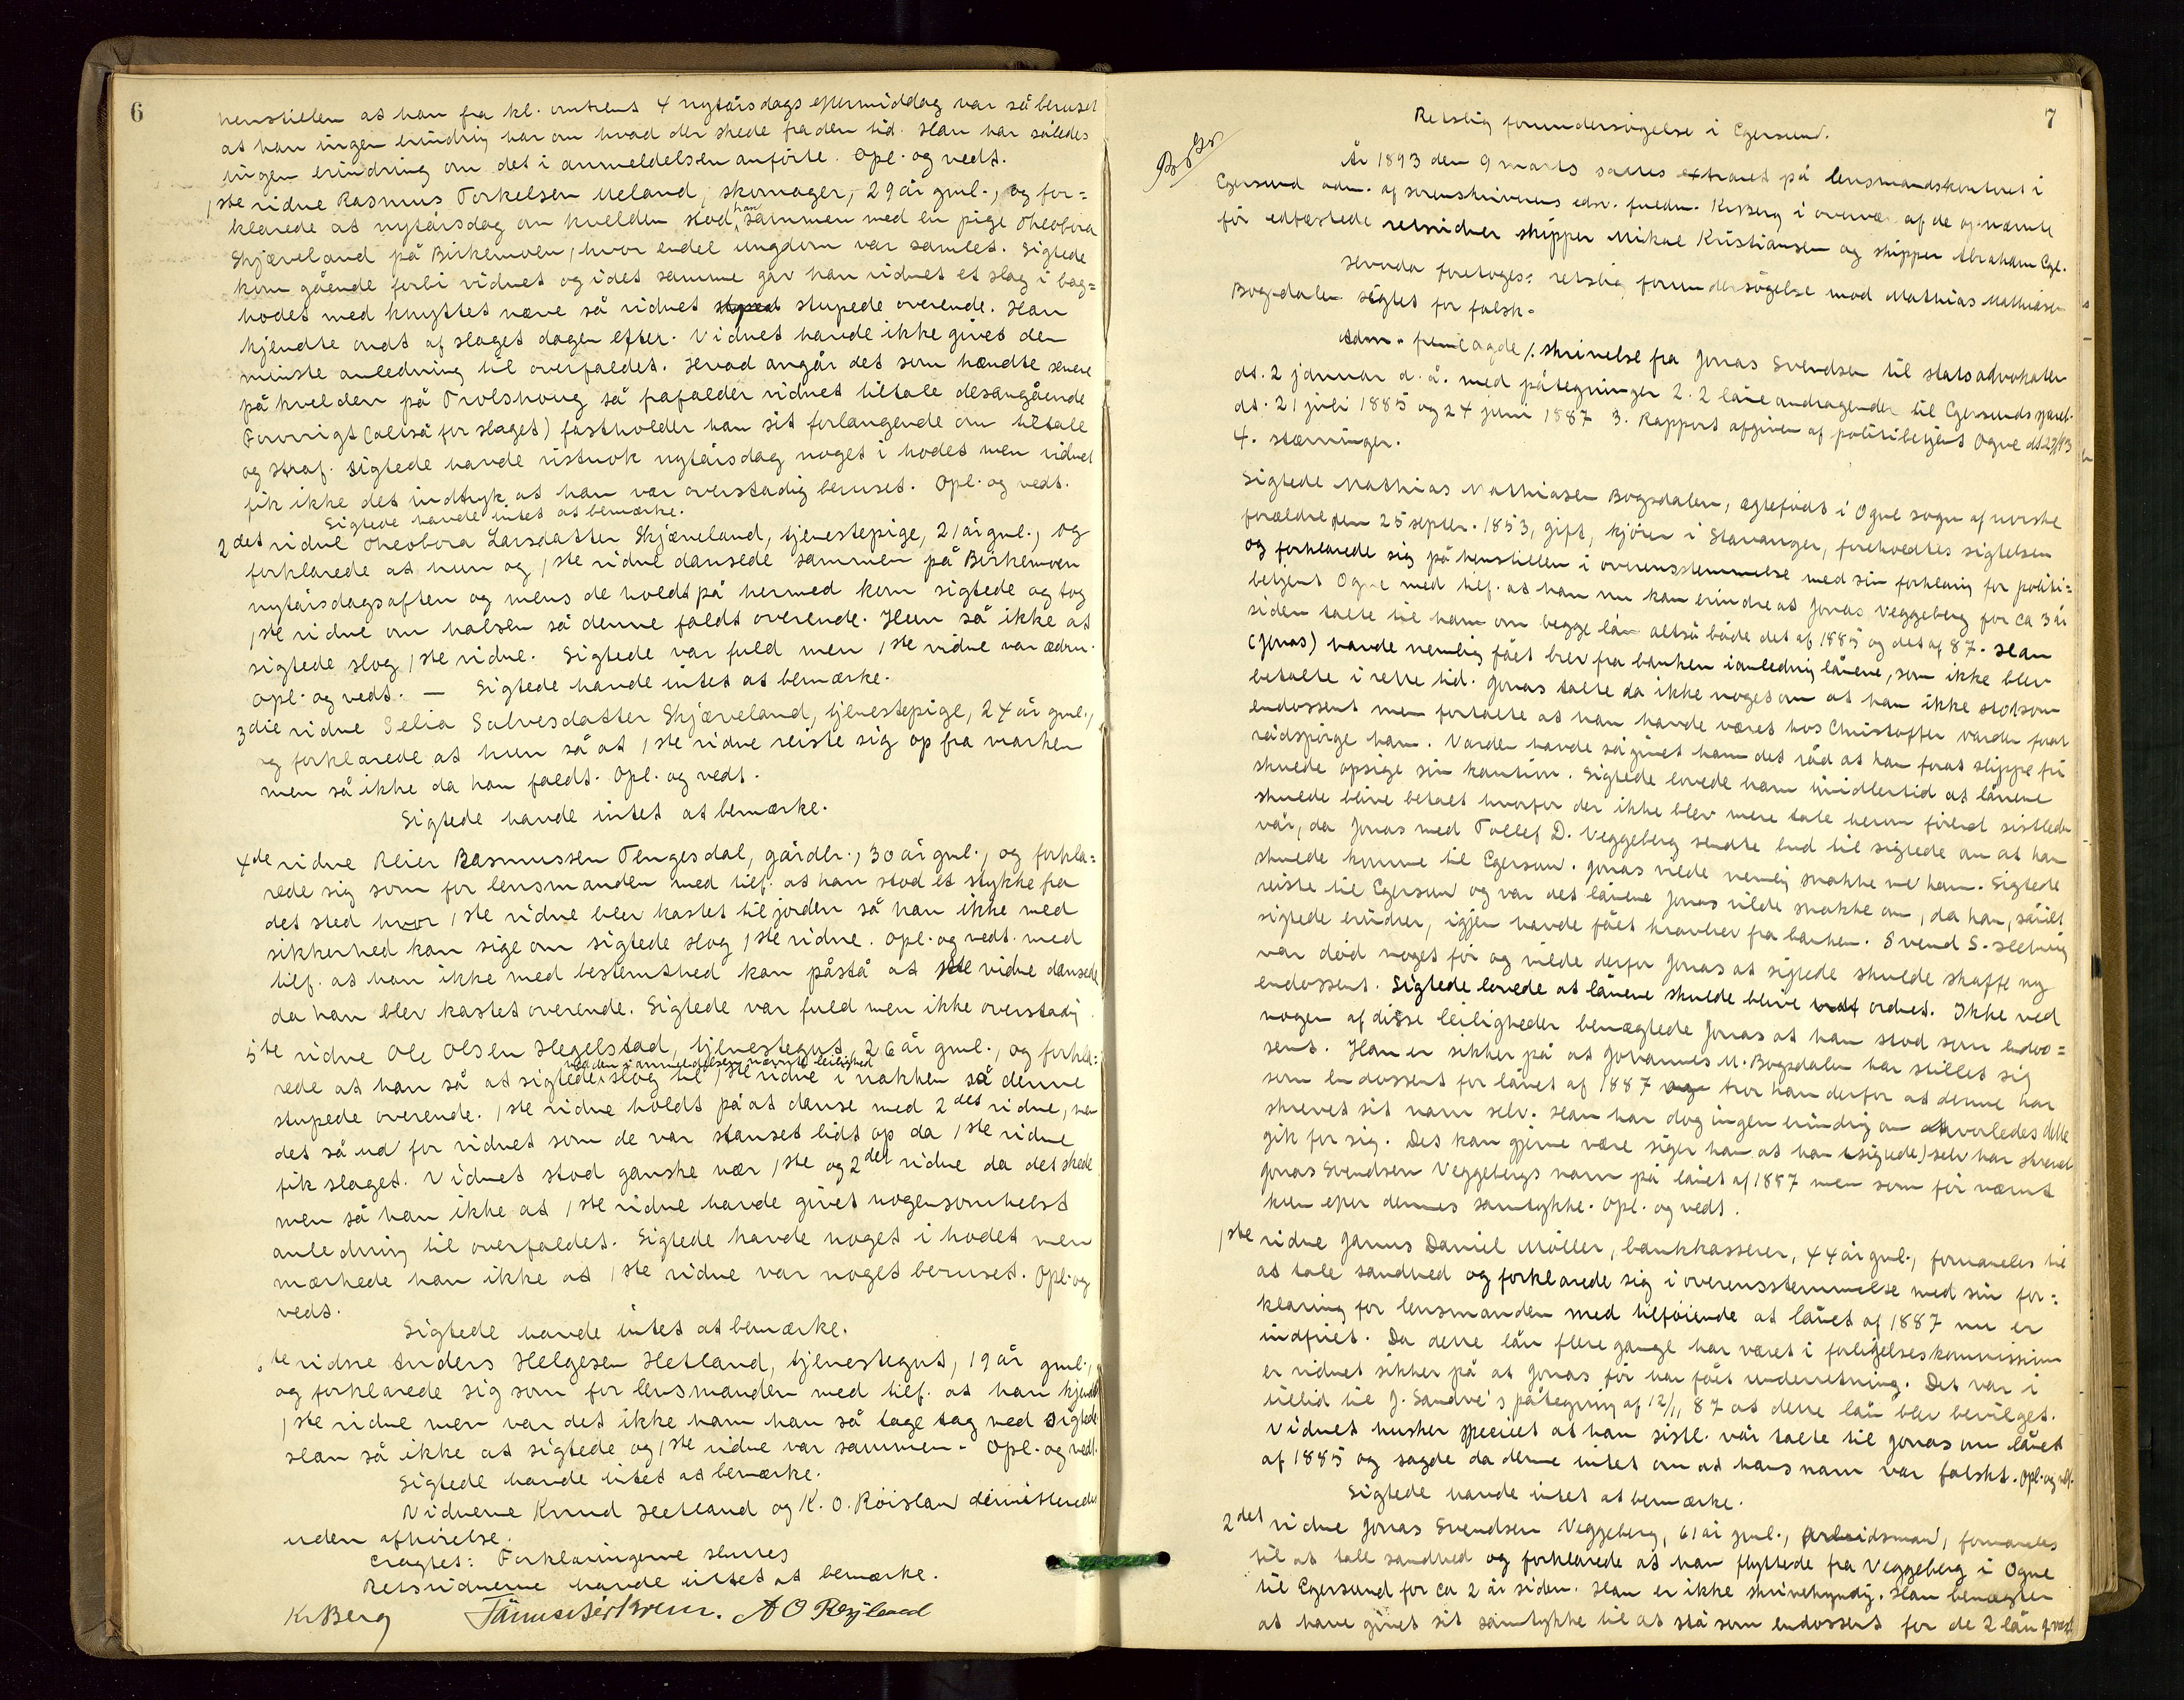 6
henstillen at han fra kl. omtrent 4 nytårsdags eftermiddag var så beruset
at han ingen erindring har om hvad der skede fra den tid. Han har således
ingen erindring om det i anmeldelsen anførte. Opl. og vedt.
1ste vidne Rasmus Torkelsen Ueland, skomager, 29 år gml., og for=
klarede at nytårsdag om kvelden stod han sammen med en pige Theobora
Skjæveland på Birkemoen, hvor endel ungdom var samlet. Sigtede
kom gående forbi vidnet og i det samme gav han vidnet et slag i bag=
hodet med knyttet næve så vidnet stupede overende. Han
kjendte ondt af slaget dagen efter. Vidnet havde ikke givet den
minste anledning til overfaldet. Hvad angår det som hændte senere
på kvelden på Trolshoug så frafalder vidnet tiltale desangående
Forøvrigt (altså for slaget) fastholder han sit forlangende om tiltale
og straf. Sigtede havde vistnok nytårsdag noget i hodet men vidnet
fik ikke det indtryk at han var overstadig beruset. Opl. og vedt.
Sigtede havde intet at bemærke.
2det vidne Theobora Larsdatter Skjæveland, tjenestepige, 21 år gml., og
forklarede at hun og 1ste vidne dansede sammen på Birkemoen
nytårsdagsaften og mens de holdt på hermed kom sigtede og tog
1ste vidne om halsen så denne faldt overende. Hun så ikke at
sigtede slog 1ste vidne. Sigtede var fuld men 1ste vidne var ædru.
Opl. og vedt. — Sigtede havde intet at bemærke.
3die vidne Selia Salvesdatter Skjæveland, tjenestepige, 24 år gml.,
og forklarede at hun så at 1ste vidne reiste sig op fra marken
men så ikke da han faldt. Opl. og vedt.
Sigtede havde intet at bemærke.
4de vidne Reier Rasmussen Tengesdal, gårdbr., 30 år gml., og forkla=
rede sig som for lensmanden med tilf. at han stod et stykke fra
det sted hvor 1ste vidne blev kastet til jorden så han ikke med
sikkerhed kan sige om sigtede slog 1ste vidne. Opl. og vedt. med
tilf. at han ikke med bestemthed kan påstå at 1ste vidne dansede
da han blev kastet overende. Sigtede var fuld men ikke overstadig
5te vidne Ole Olsen Hegelstad, tjenestegut, 26 år gml., og forkla=
ved den i anmeldelsen nævnte leilighed
rede at han så at sigtede slog til 1ste vidne i nakken så denne
stupede overende. 1ste vidne holdt på at danse med 2det vidne, men
det så ud for vidnet som de var stanset lidt op da 1ste vidne
fik slaget. Vidnet stod ganske nær 1ste og 2det vidne da det skede
men så han ikke at 1ste vidne havde givet nogensomhelst
anledning til overfaldet. Sigtede havde noget i hodet men
mærkede han ikke at 1ste vidne var noget beruset. Opl. og
vedt.
Sigtede havde intet at bemærke.
6te vidne Anders Helgesen Hetland, tjenestegut, 19 år gml.,
og forklarede sig som for lensmanden med tilf. at han kjendte
1ste vidne men var det ikke ham han så tage tag ved sigtede
Han så ikke at sigtede og 1ste vidne var sammen. Opl. og vedt.
Sigtede havde intet at bemærke.
Vidnerne Knud Hetland og K. O. Röisland dimitteredes
uden afhörelse.
eragtet: Forklaringerne sluttes
Retsvidnerne havde intet at bemærke.
Kr Berg A O Røysland
7
Retslig forundersögelse i Egersund.
År 1893 den 9 marts sattes extraret på lensmandskontoret i
Egersund adm. af sorenskriverens edsv. fuldm. Kr Berg i overvær af de opnævnte
för edfæstede retsvidner skipper Mikal Kristiansen og skipper Abraham Egel.
Hvorda foretoges: retslig forundersögelse mod Mathias Mathiasen
Bogsdalen sigtet for falsk.
Adm. fremlagde 1. skrivelse fra Jonas Svendsen til statsadvokaten
dt. 2 januar d. å. med påtegninger 2. 2 låneandragender til Egersunds spareb.
dt. 21 juli 1885 og 24 juni 1887 3. Rapport afgiven af politibetjent Ogne
4. stævninger.
Sigtede Mathias Mathiasen Bogsdalen, ægtefödt i Ogne sogn af norske
forældre den 25 septbr. 1853, gift, kjörer i Stavanger, foreholdtes sigtelsen
og forklarede sig på henstillen i overensstemmelse med sin forklaring for politi=
betjent Ogne med tilf. at han nu kan erindre at Jonas Veggeberg for ca 3 år
siden talte til ham om begge lån altså både det af 1885 og det af 87. Han
(Jonas) havde nemlig fået brev fra banken i anledning lånene, som ikke blev
betalte i rette tid. Jonas talte da ikke noget om at han ikke stod som
endossent men fortalte at han havde været hos Christoffer Varden forat
rådspörge ham. Varden havde så givet ham det råd at han forat slippe fri
skulde opsige sin kaution. Sigtede lovede ham imidlertid at lånene
skulde blive betalt hvorfor der ikke blev mere tale herom förend sistleden
vår, da Jonas med Tollef D. Veggeberg sendte bud til sigtede om at han
skulde komme til Egersund. Jonas vilde nemlig snakke ved ham. Sigtede
reiste til Egersund og var det lånene Jonas vilde snakke om, da han, såvidt
sigtede erindrer, igjen havde fået kravbrev fra banken. Svend S.
var död noget för og vilde derfor Jonas at sigtede skulde skaffe ny
endossent. Sigtede lovede at lånene skulde blive ordnet. Ikke ved
nogen af disse leiligheder benægtede Jonas at han stod som endos=
sent. Han er sikker på at Johannes M. Bogsdalen har stillet sig
som endossent for lånet af 1887 tror han derfor at denne har
skrevet sit navn selv. Han har dog ingen erindring om hvorledes dette
gik for sig. Det kan gjerne være siger han at han (sigtede) selv har skrevet
Jonas Svendsen Veggebergs navn på lånet af 1887 men som för nævnt
kun efter dennes samtykke. Opl. og vedt.
1ste vidne Janus Daniel Möller, bankkasserer, 44 år gml., formanedes til
at tale sandhed og forklarede sig i overensstemmelse med sin for=
klaring for lensmanden med tilföiende at lånet af 1887 nu er
indfriet. Da dette lån flere gange har været i forligelseskommission
er vidnet sikker på at Jonas för har fået underretning. Det var i
tillid til J. Sandve's påtegning af 12/11 87 at dette lån blev bevilget.
Vidnet husker specielt at han sistl. vår talte til Jonas om lånet
af 1885 og sagde da denne intet om at hans navn var falskt. Opl. og vedt.
Sigtede havde intet at bemærke.
2det vidne Jonas Svendsen Veggeberg, 61 år gml., arbeidsmand, formanedes
til at tale sandhed og forklarede at han flyttede fra Veggeberg i Ogne
til Egersund for ca 2 år siden. Han er ikke skrivekyndig. Han benægter
at have givet sit samtykke til at stå som endossent for de 2 lån